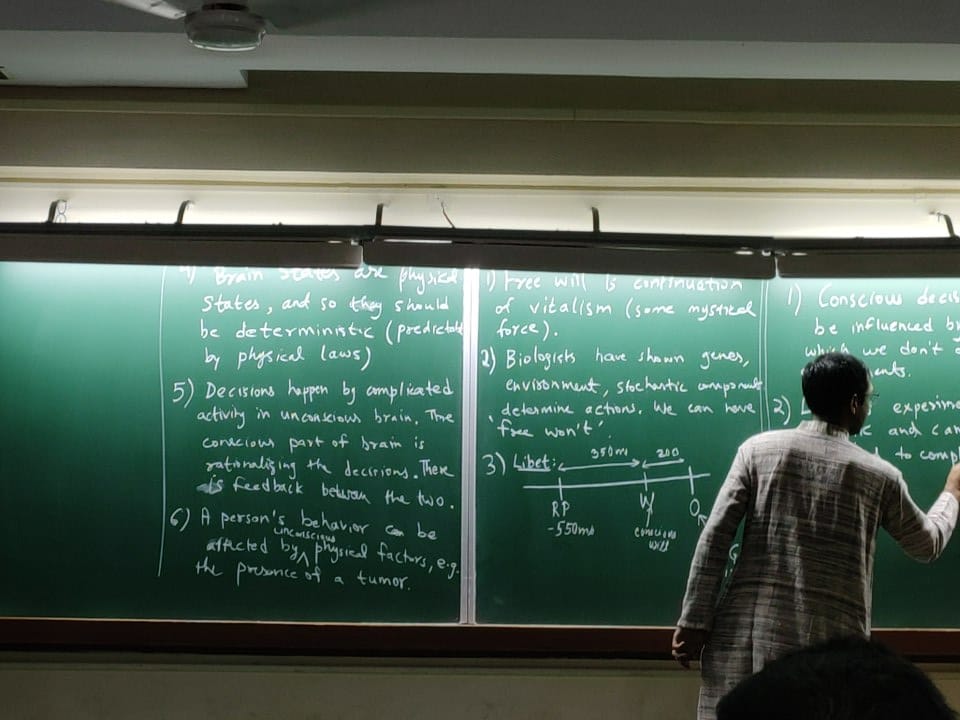 4) Brain states are physical
states, and so they should
be deterministic (predictable
by physical laws)
5) Decisions happen by complicated
activity in unconscious brain. The
conscious part of brain is
rationalizing the decisions. There
is feedback between the two.
6) A person's behavior can be
affected by unconscious physical factors, e.g.
the presence of a tumor.
1) Free will is continuation
of vitalism (some mystical
force).
2) Biologists have shown genes,
environment, stochastic components
determine actions. We can have
'free won't'.
3) Libet: 350ms 200
RP W O
-550ms conscious
will
1) Conscious decis
be influenced by
which we don't
ents.
2) experime
c and can
to compl